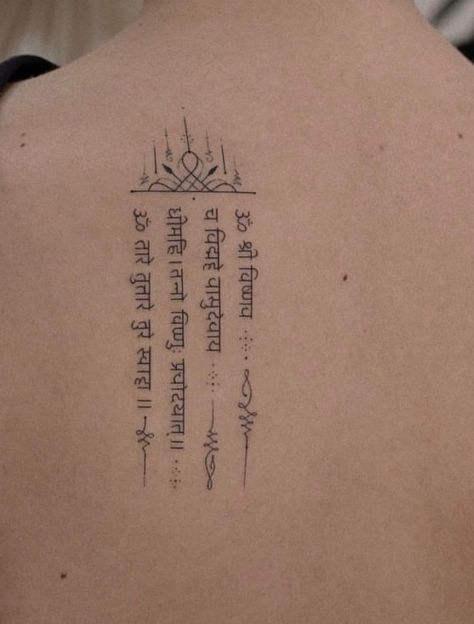 ॐ श्री विष्णव
च विद्महे वासुदेवाय
धीमहि । तन्नो विष्णुः प्रचोदयात् ॥
ॐ तारे तुत्तारे तुरे स्वाहा ॥